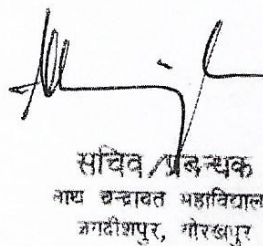 सचिव/प्रबन्धक
नाथ चन्द्रावत महाविद्याल
जगदीशपुर, गोरखपुर